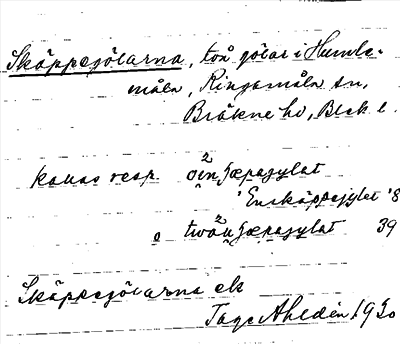 Skäppegölarna, två gölar i Humle-
måla, Ringamåla sn,
Bräkne hd, Blek l.
kallas resp.
'Enskäppegylet' 8
39
Skäppegölarna ek
Tage Ahldén 1930